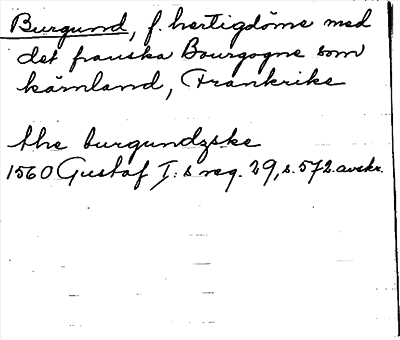 Burgund, f. hertigdöme med
det franska Bourgogne som
kärnland, Frankrike
the burgundzske
1560 Gustaf I:s reg. 29, s. 572. avskr.